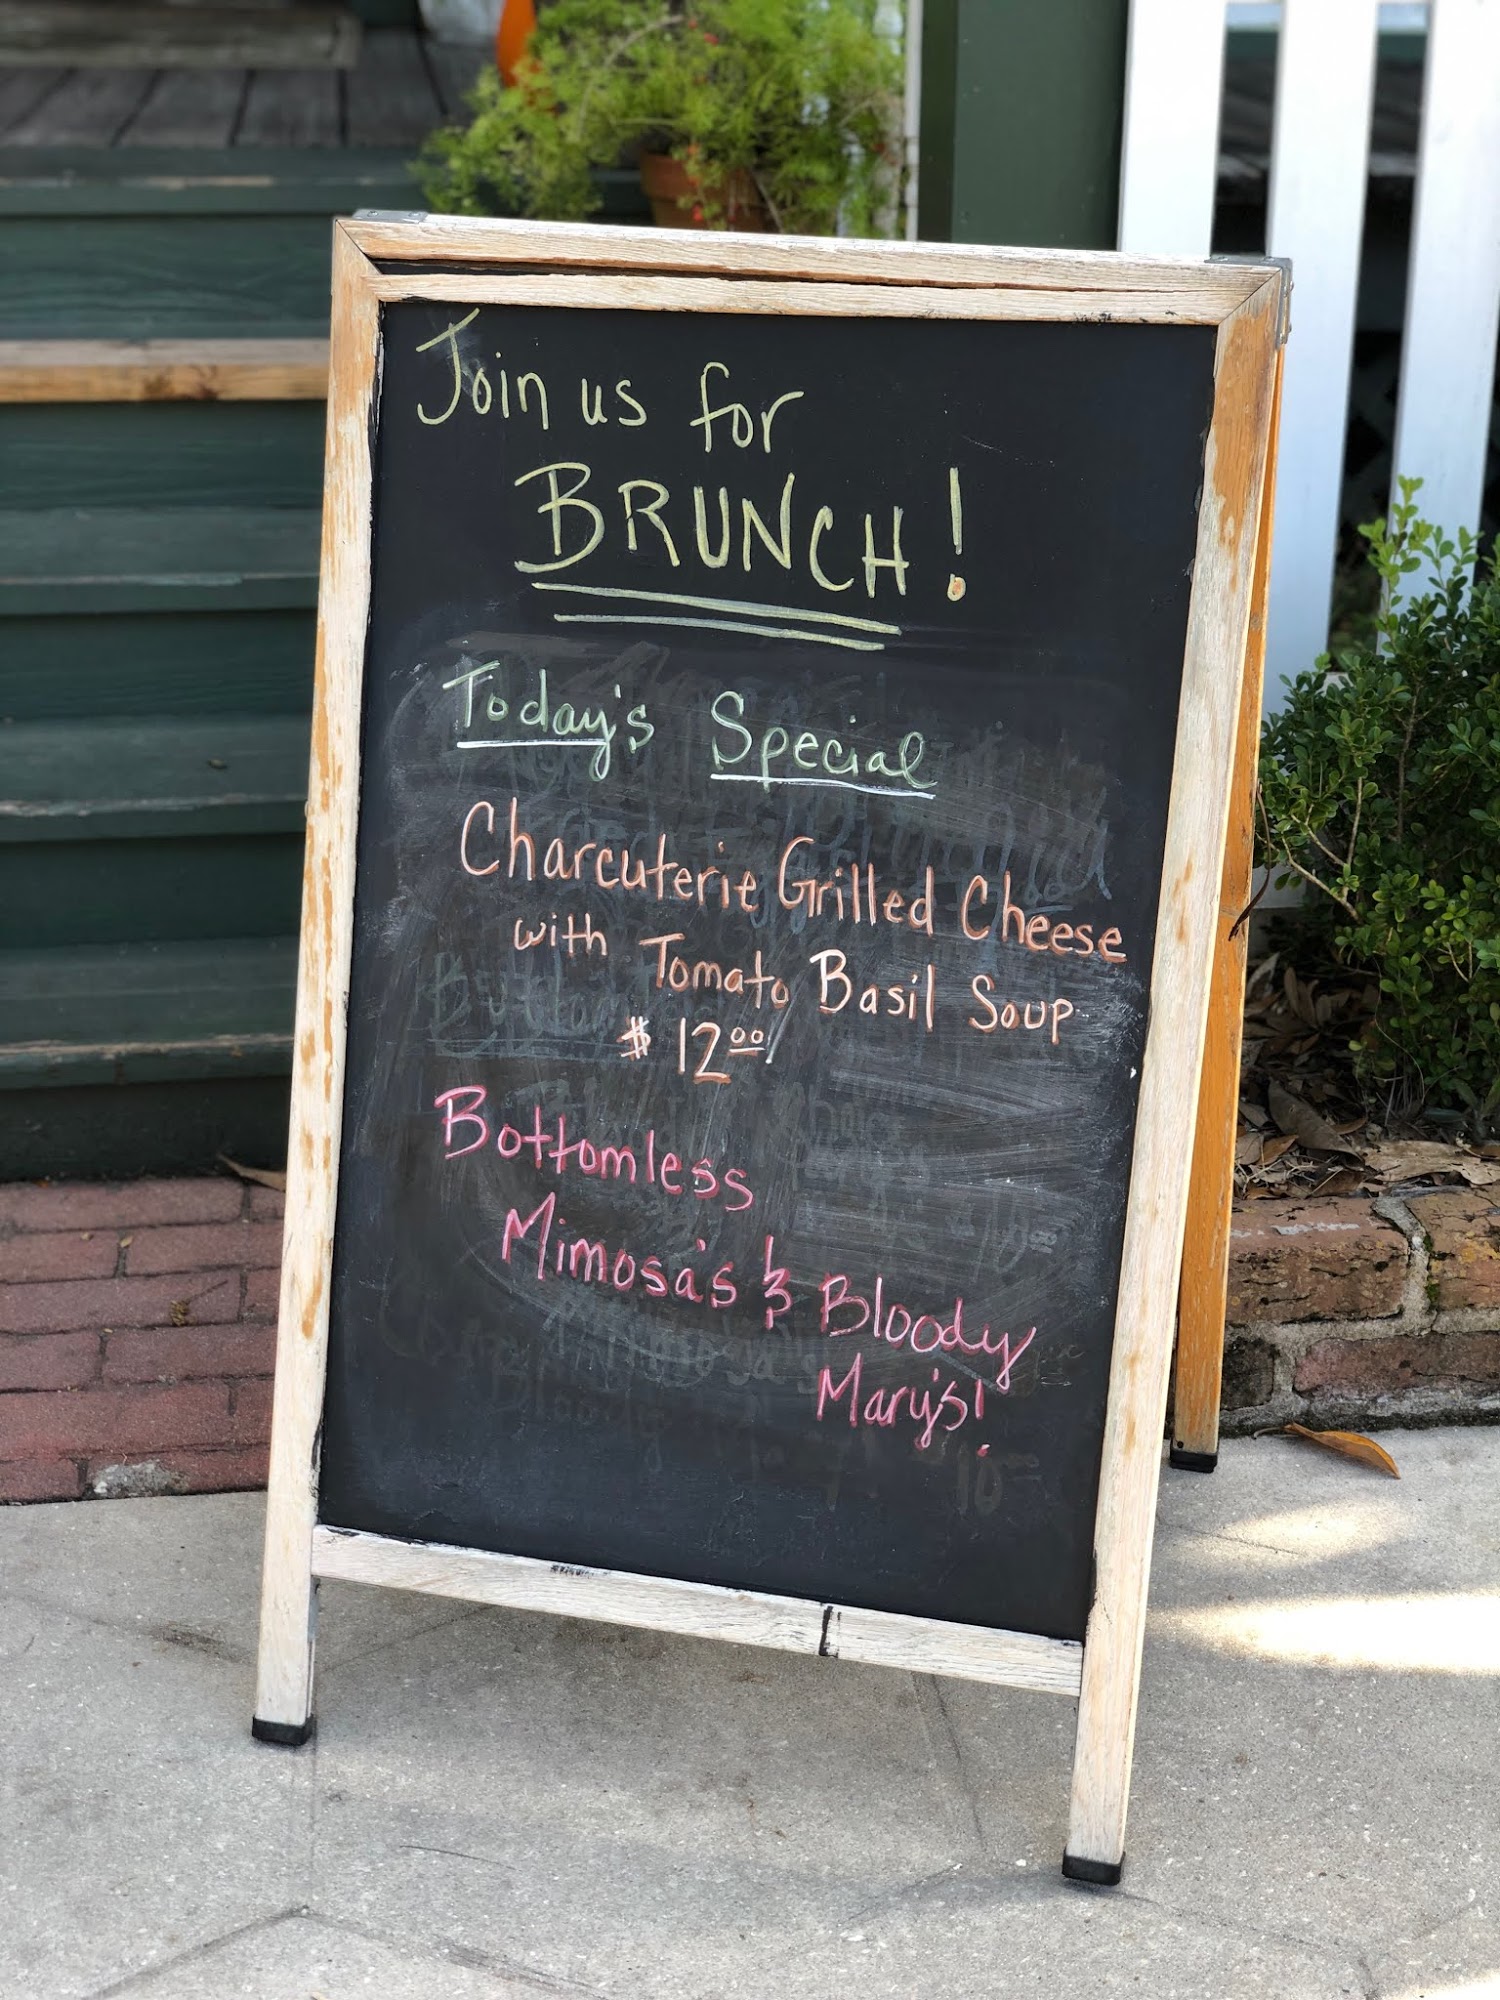 Join us for
BRUNCH!
Today's Special
Charcuterie Grilled Cheese
with Tomato Basil Soup
$12.00
Bottomless
Mimosa's & Bloody
Mary's!